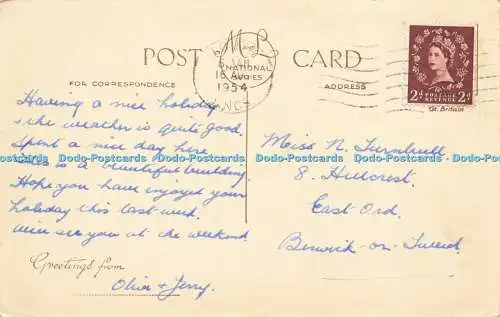 POST CARD
FOR CORRESPONDENCE
ADDRESS
NATIONAL
16 AUG
1954
2D POSTAGE REVENUE 2D
Gt. Britain
Having a nice holiday
the weather is quite good.
Spent a nice day here
is a beautiful building.
Hope you have enjoyed your
holiday this last week.
Will see you at the weekend.
Greetings from
Olive + Jerry.
Miss N. Turnbull
8. Hillcrest.
East Ord.
Berwick-on-Tweed.
Dodo-Postcards Dodo-Postcards Dodo-Postcards Dodo-Postcards Dodo-Postcards Dodo-Postcards